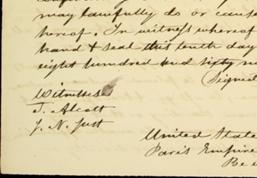 may lawfully do or cause
hereof. In witness whereof
hand & seal this tenth day
eight hundred and sixty
(Signed
Witnesses
J. Alcott
J. N. Just
United State
Paris Empire
Be i